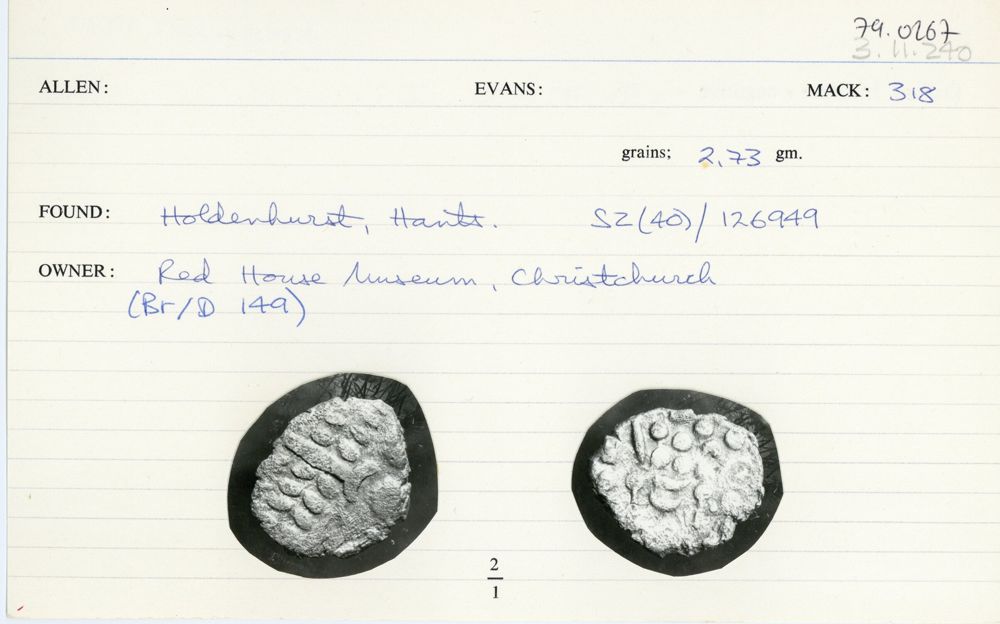 79.0267
3.11.240
ALLEN: EVANS: MACK: 318
grains; 2.73 gm.
FOUND: Holdenhurst, Hants. SZ(40)/126949
OWNER: Red House Museum, Christchurch
(Br/D 149)
2
1